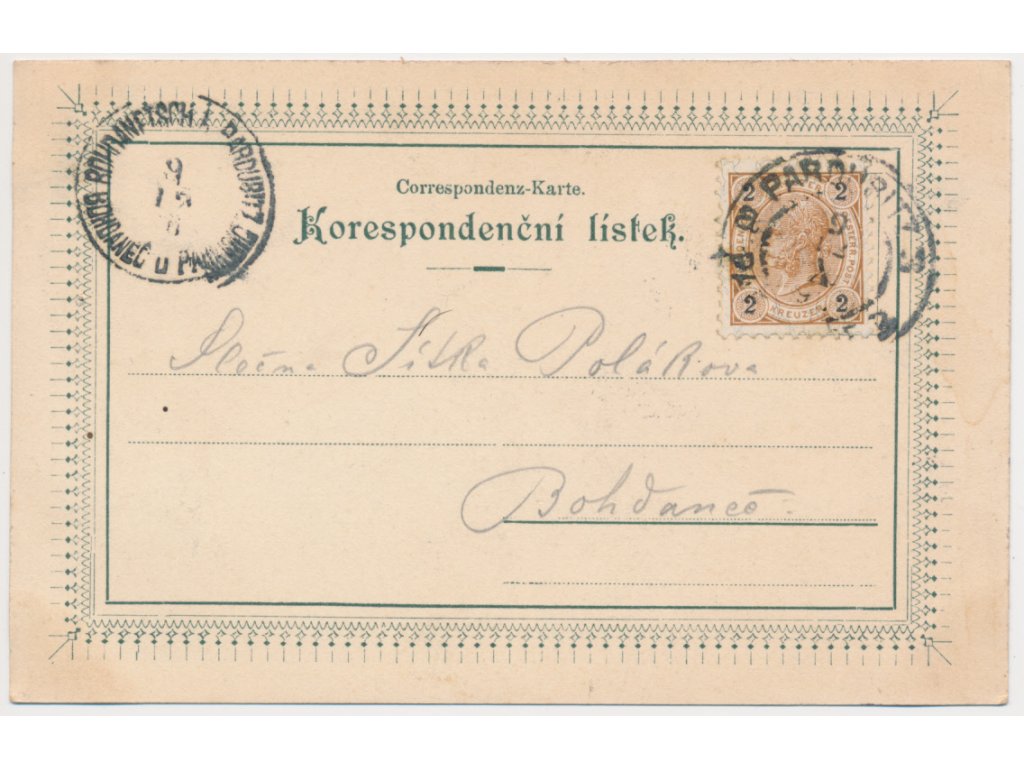 Correspondenz-Karte.
Korespondenční lístek.
2 2
KREUZER
2 2
PARDUBITZ
BOHDANEČ U PARDUBIC
PARDUBITZ
9
Slečna Jitka Polákova
Bohdaneč.